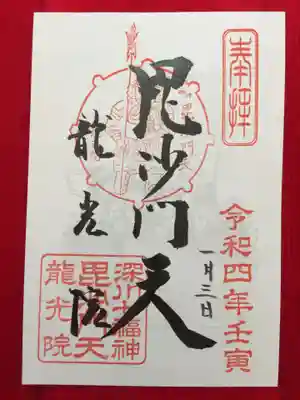 奉拝
令和四年壬寅
一月三日
毘沙門天
龍光院
深川七福神
毘沙門天
龍光院